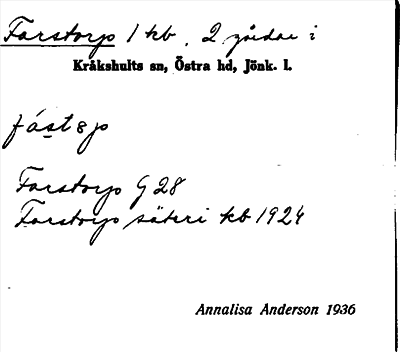 Farstorp 1 kb, 2 gårdar i
Kråkshults sn, Östra hd, Jönk. l.
fást8p
Farstorp G 28
Farstorp säteri kb 1924
Annalisa Anderson 1936